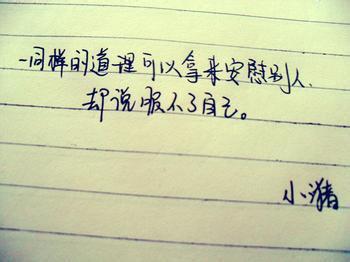 同样的道理可以拿来安慰别人、
却说服不了自己。
小猪